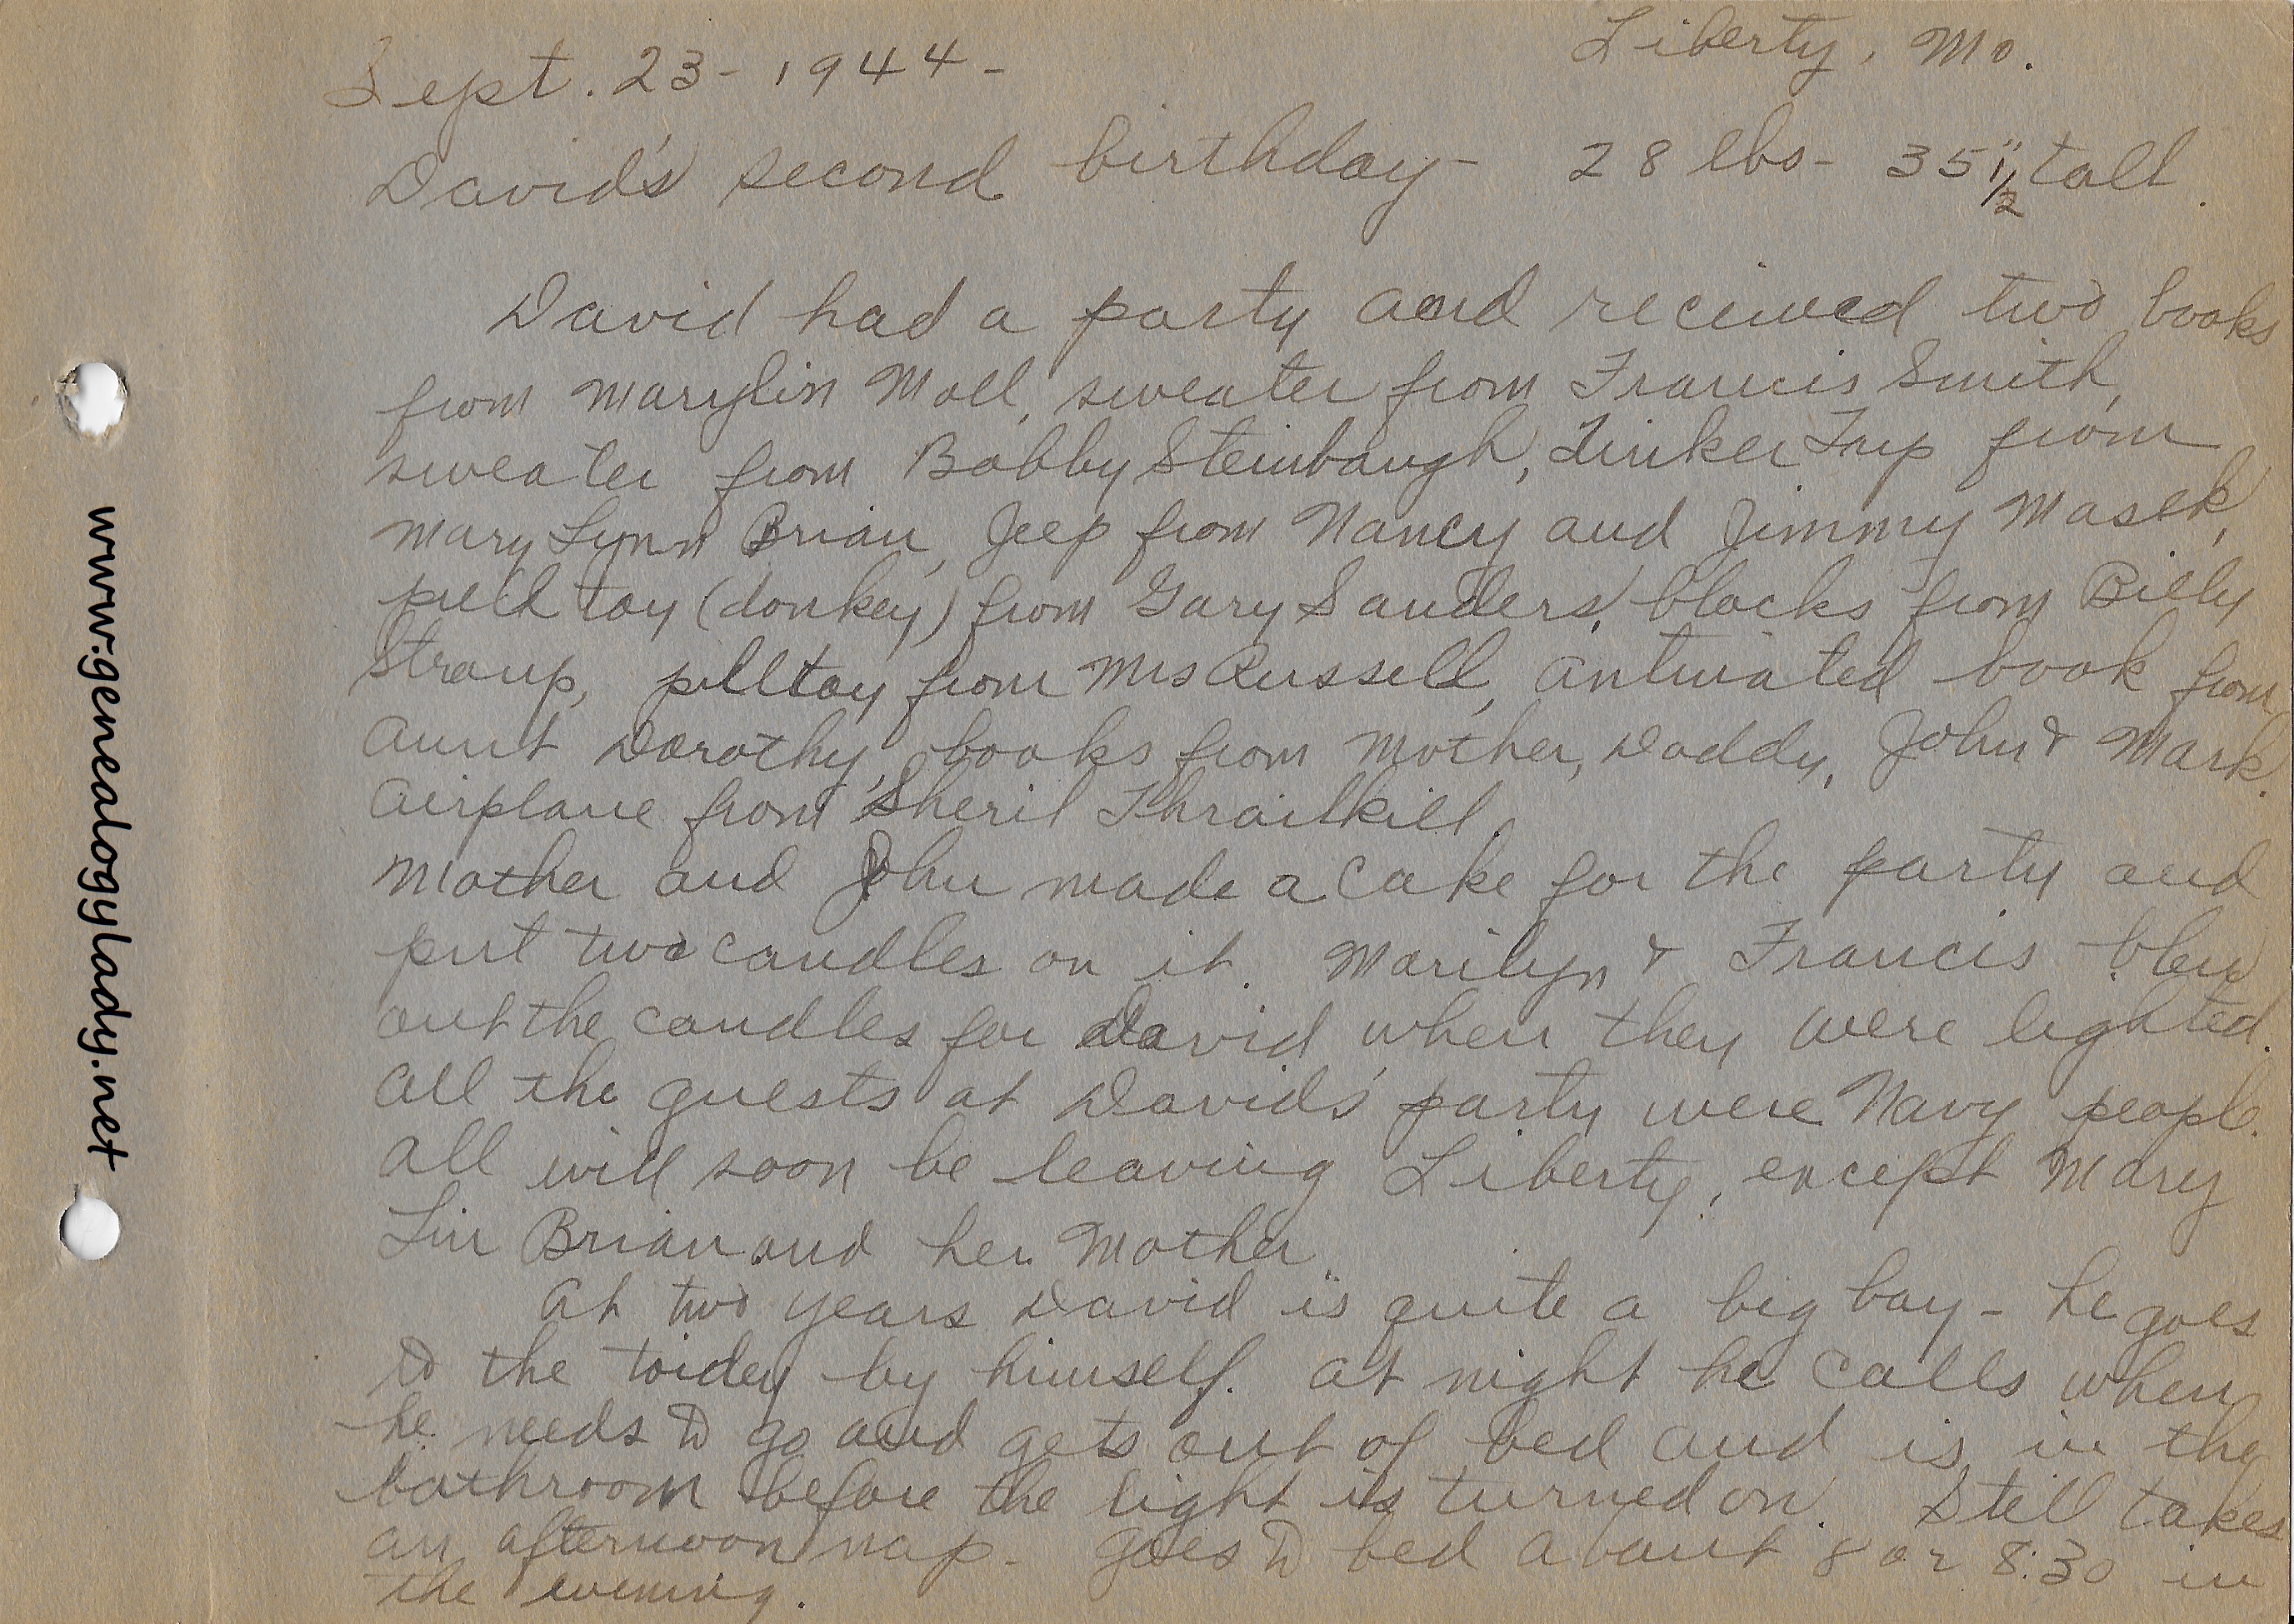 Sept. 23 - 1944 -
Liberty, Mo.
David's second birthday - 28 lbs - 35 1/2" tall.
David had a party and received two books
from Marylin Moll, sweater from Francis Smith,
sweater from Bobby Steinbaugh, Tinker from
Mary Lynn Brian, Jeep from Nancy and Jimmy Masek,
pull toy (donkey) from Gary Sanders, blocks from Billy
Stroup, pulltoy from Mrs Russell, book from
Aunt Dorothy, books from Mother, Daddy, John & Mark.
Airplane from Sheril Thrailkill.
Mother and John made a cake for the party and
put two candles on it. Marilyn & Francis blew
out the candles for David when they were lighted.
All the guests at David's party were Navy people.
All will soon be leaving Liberty, except Mary
Lin Brian and her Mother.
At two years David is quite a big boy - he goes
to the toidey by himself. At night he calls when
he needs to go and gets out of bed and is in the
bathroom before the light is turned on. Still takes
an afternoon nap - goes to bed about 8 or 8:30 in
the evening.
www.genealogylady.net